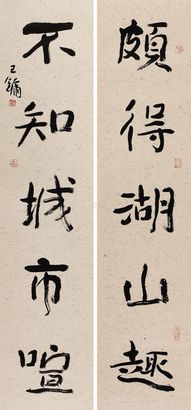 頗得湖山趣
不知城市喧
王鏞